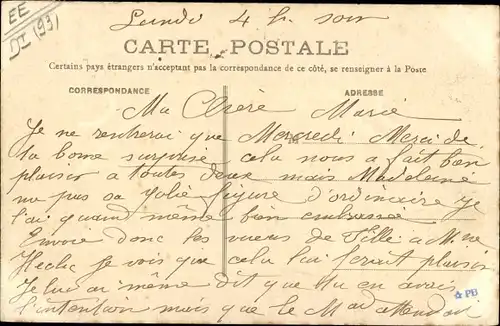 EE
DI (93)
Lundi 4 h. soir
CARTE POSTALE
Certains pays étrangers n'acceptant pas la correspondance de ce côté, se renseigner à la Poste
CORRESPONDANCE
ADRESSE
Ma Chère Marie
Je ne rentrerai que Mercredi Merci de
ta bonne surprise cela nous a fait bien
plaisir a toutes deux mais Madeleine
na pas sa jolie figure d'ordinaire je
l'ai quand même bien embrassée
Envoie donc les vœux de Fille a Mme
je vois que cela lui ferait plaisir
Je lui ai même dit que tu en avais
l'intention mais que le
PB